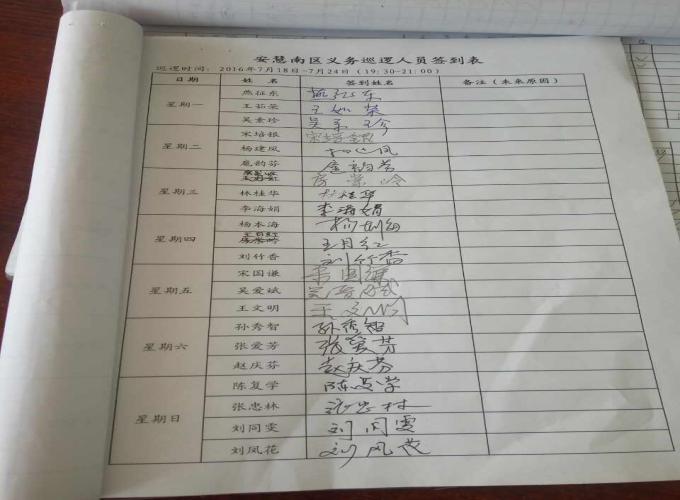 安慧南区义务巡逻人员签到表
巡逻时间：2016年7月18日~7月24日（19:30-21:00）
日期 姓名 签到姓名 备注（未来原因）
星期一 燕征东 燕征东
王茹荣 王如荣
吴素珍 吴素珍
星期二 宋培银 宋培银
杨建凤
扈韵芬 扈韵芬
星期三 房荣岭
林桂华 林桂华
李海娟 李海娟
星期四 杨本海
王月红 王月红
刘竹香 刘竹香
星期五 宋国谦 宋国谦
吴爱斌
王文明 王文明
星期六 孙秀智 孙秀智
张爱芳 张爱芬
赵庆芬 赵庆芬
星期日 陈复学 陈复学
张忠林 张忠林
刘同雯 刘同雯
刘凤花 刘凤花